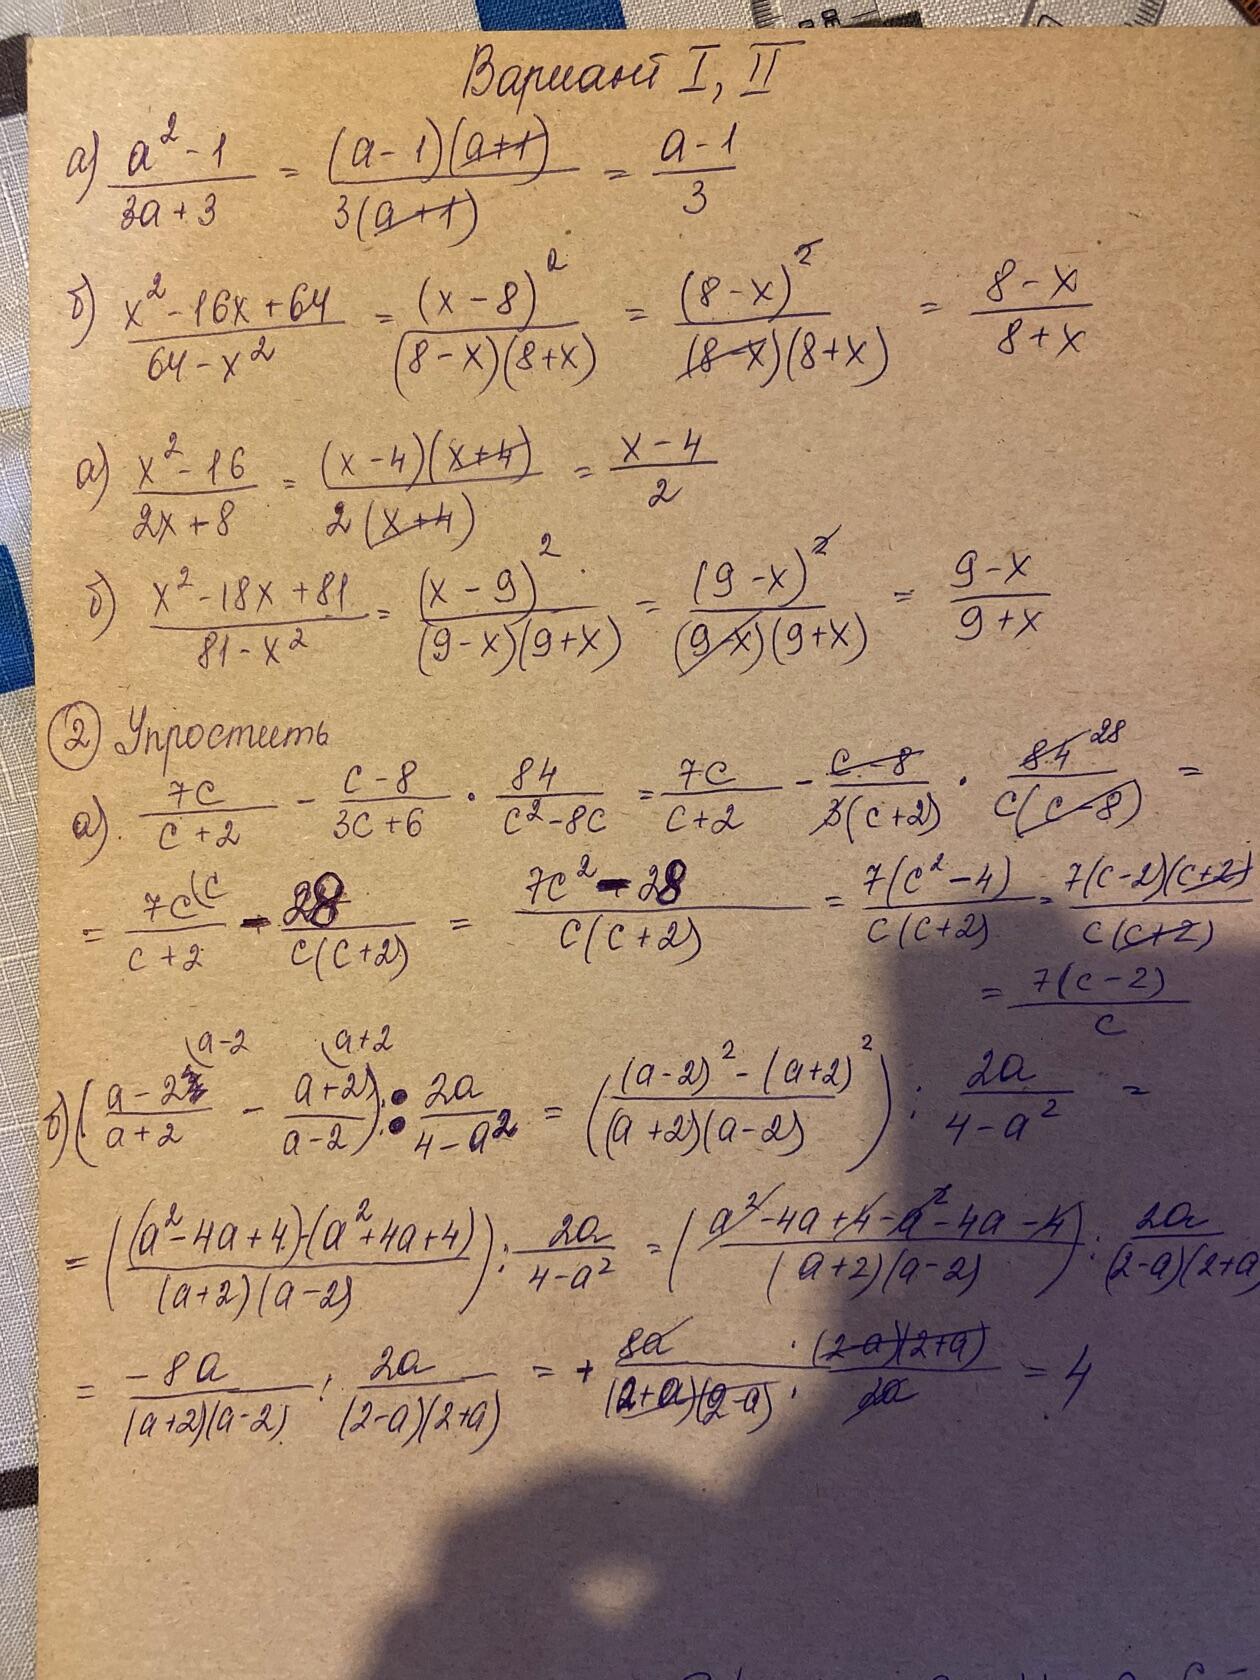 Вариант I, II
а) (a² - 1)/(3a + 3) = ((a - 1)(a+1))/(3(a+1)) = (a - 1)/3
б) (x² - 16x + 64)/(64 - x²) = (x - 8)²/((8 - x)(8 + x)) = (8 - x)²/((8 - x)(8 + x)) = (8 - x)/(8 + x)
а) (x² - 16)/(2x + 8) = ((x - 4)(x+4))/(2(x+4)) = (x - 4)/2
б) (x² - 18x + 81)/(81 - x²) = (x - 9)²/((9 - x)(9 + x)) = (9 - x)²/((9 - x)(9 + x)) = (9 - x)/(9 + x)
② Упростить
а) 7c/(c + 2) - (c - 8)/(3c + 6) · 84/(c² - 8c) = 7c/(c + 2) - (c - 8)/(3(c + 2)) · 84 28/(c(c - 8)) =
= 7c (c/(c + 2) - 28/(c(c + 2)) = (7c² - 28)/(c(c + 2)) = 7(c² - 4)/(c(c + 2)) = 7(c - 2)(c + 2)/(c(c + 2))
= 7(c - 2)/c
(a - 2 (a + 2
б) ((a - 2)/(a + 2) - (a + 2)/(a - 2)) : 2a/(4 - a²) = (((a - 2)² - (a + 2)²)/((a + 2)(a - 2))) : 2a/(4 - a²) =
= (((a² - 4a + 4) - (a² + 4a + 4))/((a + 2)(a - 2))) : 2a/(4 - a²) = ((a² - 4a + 4 - a² - 4a - 4)/((a + 2)(a - 2))) : 2a/((2 - a)(2 + a
= -8a/((a + 2)(a - 2)) : 2a/((2 - a)(2 + a)) = + 8a/((2 + a)(2 - a)) · (2 - a)(2 + a)/2a = 4